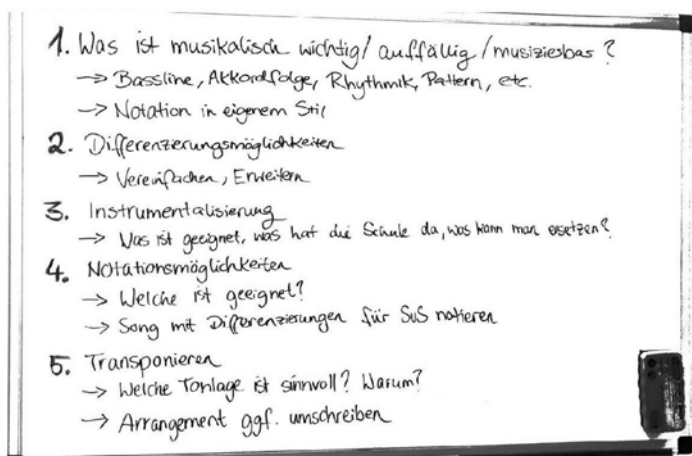 1. Was ist musikalisch wichtig/auffällig/musizierbar?
→ Bassline, Akkordfolge, Rhythmik, Pattern, etc.
→ Notation in eigenem Stil
2. Differenzierungsmöglichkeiten
→ Vereinfachen, Erweitern
3. Instrumentalisierung
→ Was ist geeignet, was hat die Schule da, was kann man ersetzen?
4. Notationsmöglichkeiten
→ Welche ist geeignet?
→ Song mit Differenzierungen für SuS notieren
5. Transponieren
→ Welche Tonlage ist sinnvoll? Warum?
→ Arrangement ggf. umschreiben